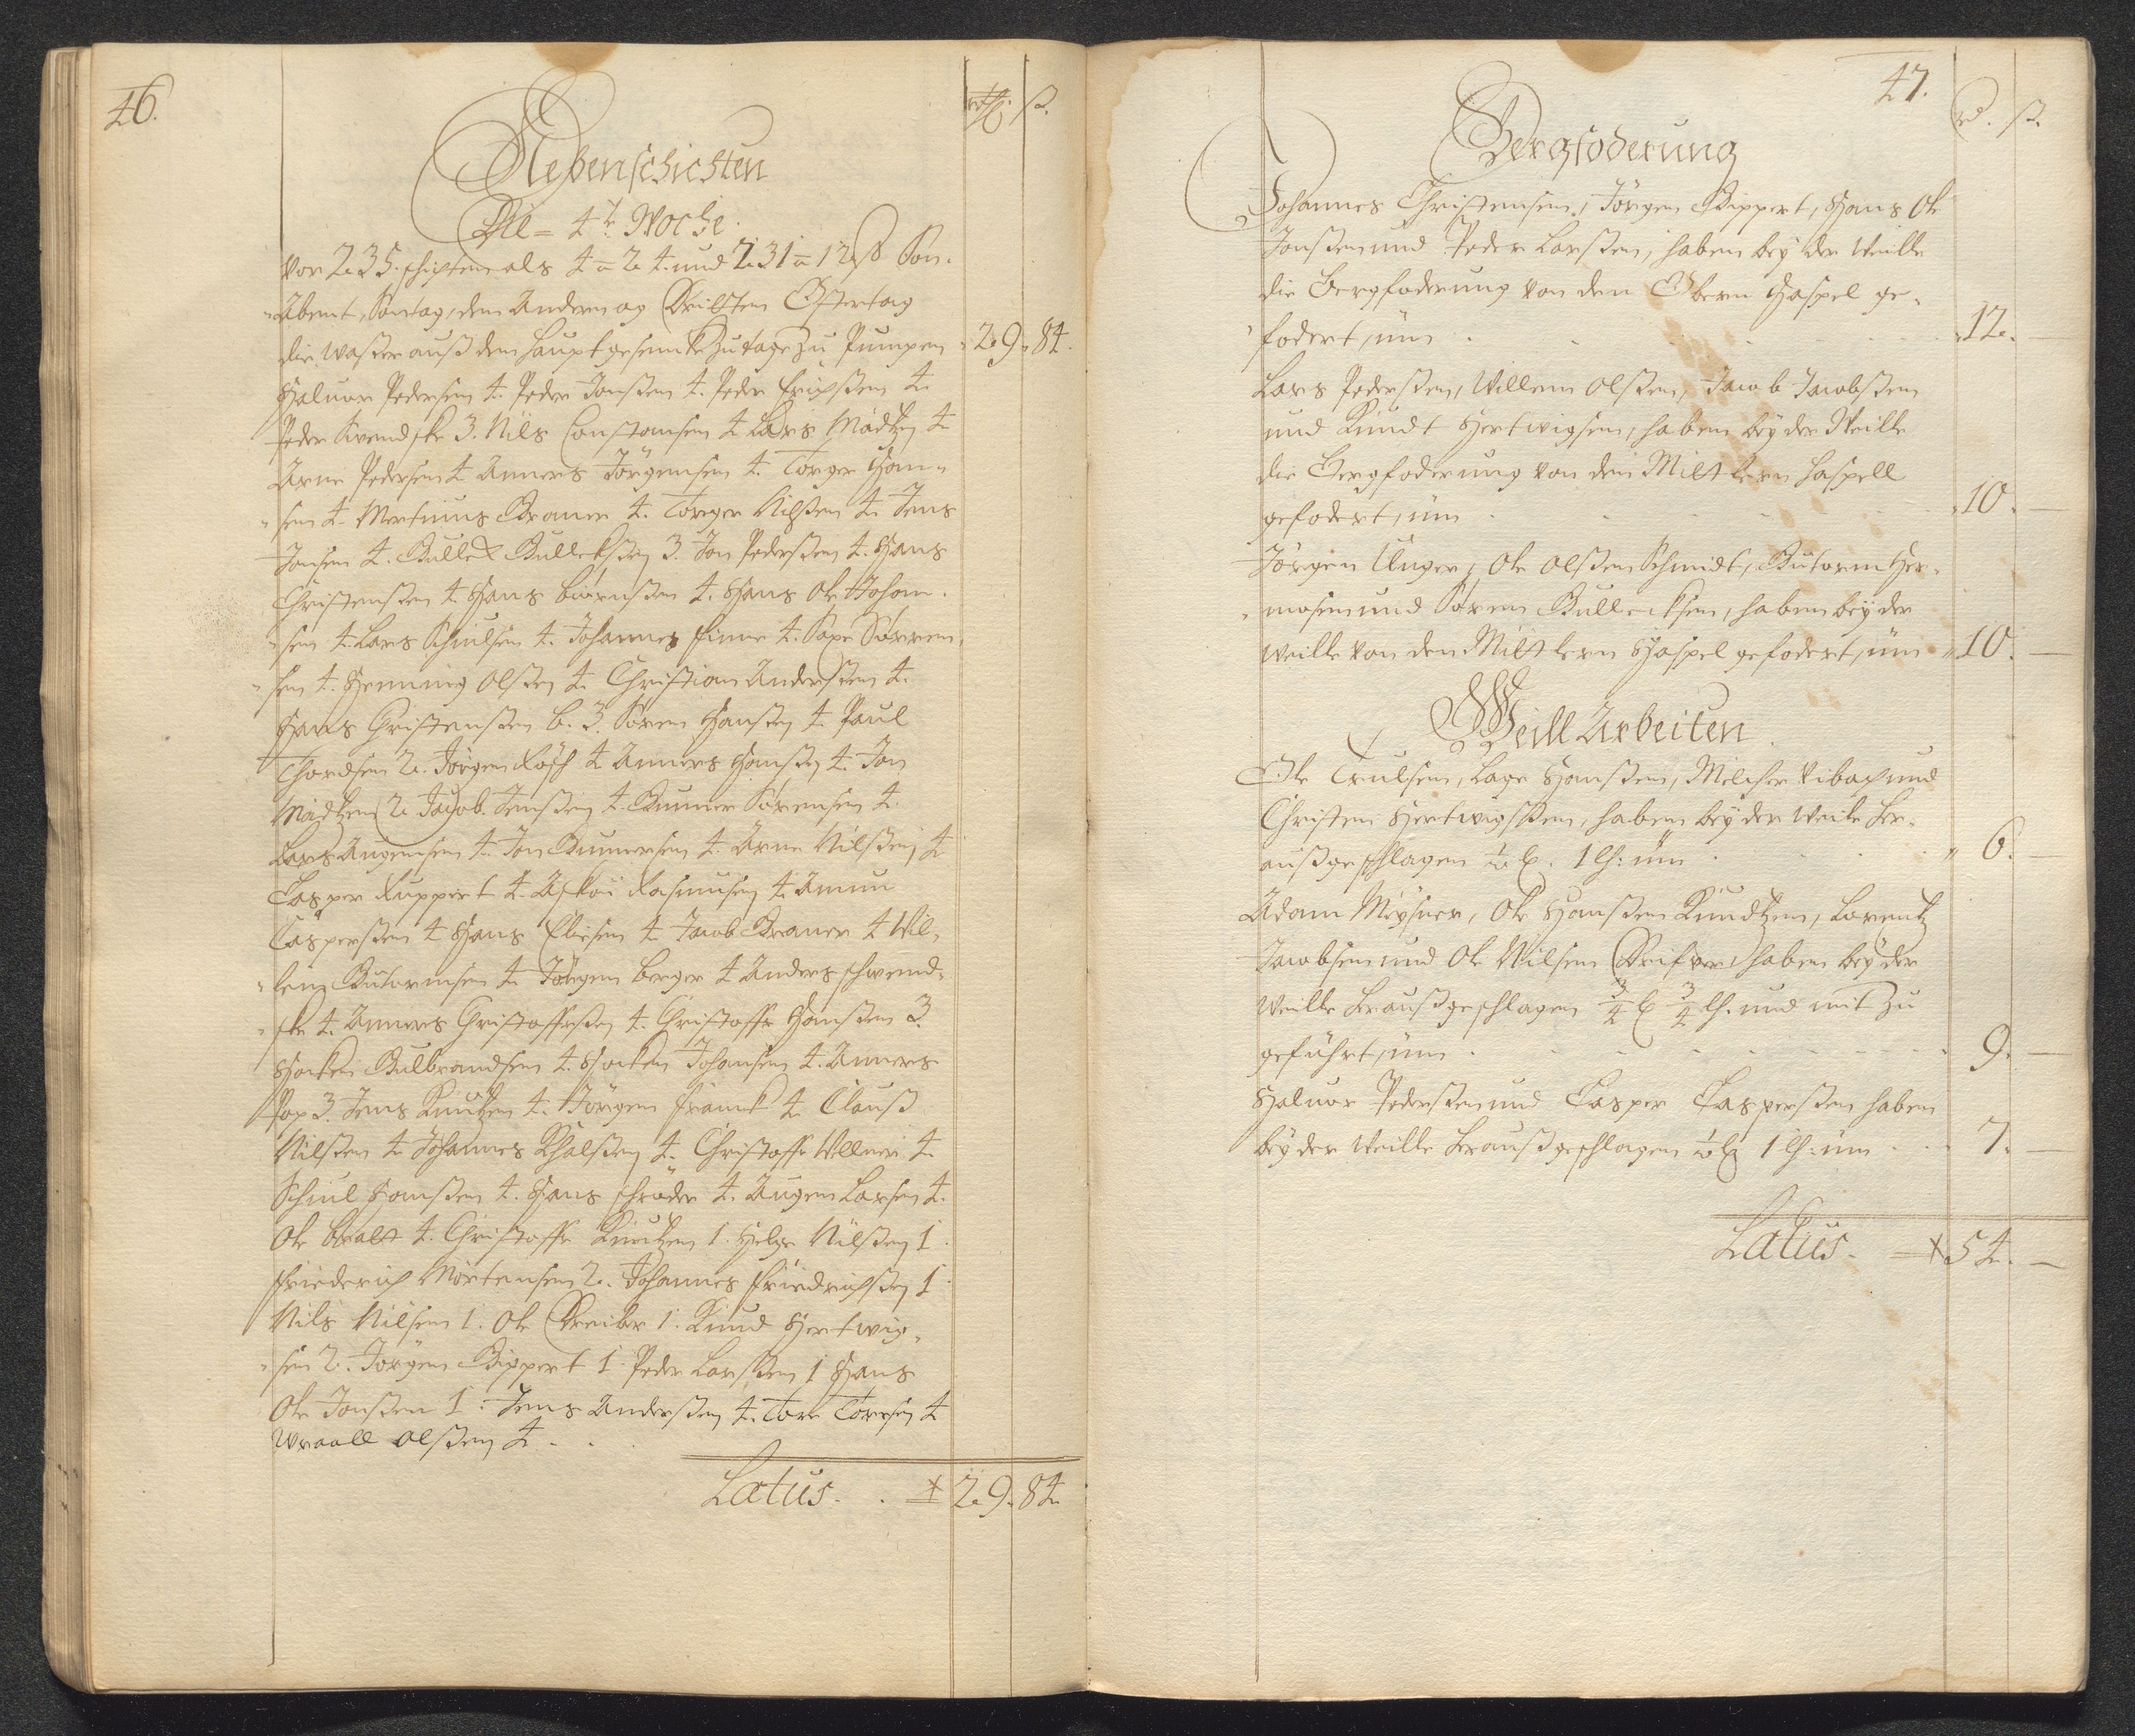 46.
rthl. ß.
Nebenschichten
Die 4te Woche.
Vor 235. schichten als 4 a 24. und 231 a 12 ß Son-
Abent, Sontag, den Andern og Dritten Ostertag
die waßer auß dem haupt gesenke zu tage zu Pumpen 29. 84.
Haluor Pedersen 4. Peder Jonßen 4. Peder Erichßen 4.
Peder Svendske 3. Nils Constansen 4 Lars Madtzen 4
Arne Pedersen 4 Anners Jörgensen 4. Torger Han-
sen 4. Mertinus Braner 4. Torger Nilßen 4. Jens
Jonsen 4. Bulled Bulledßen 3. Jon Pederßen 4. Hans
Christenßen 4. Hans biörnßen 4. Hans Ole Johan-
sen 4. Lars Schulsen 4. Johannes Finne 4. Sören-
sen 4. Henning Olßen 4. Christian Anderßen 4.
Hans Christenßen b. 3. Sören Hansen 4. Paul
Thordsen 2. Jörgen Rösch 4 Anners Hanßen 4. Jon
Madtzen 2. Jacob Jenßen 4. Gunner Sörensen 4.
Lars Augensen 4. Jon Gunnersen 4. Arne Nilßen 4
Casper Ruppert 4. Aslou Rasmusen 4. Amun
Casperßen 4 Hans Eliesen 4 Jacob Braner 4 Wil-
lem Gutormsen 4. Jörgen berger 4 Anders schwend-
ske 4. Anners Christofferßen 4. Christoffer Hanßen 3.
Hacken Gulbrandsen 4. Hacken Johansen 4. Anners
Pap 3. Jens Knutzen 4. Jörgen Franck 4. Clauß
Nilßen 4. Johannes 4. Christoffer Ullner 4.
Schiul Hanßen 4. Hans schröder 4. Augen Larsen 4.
Ole 4. Christoffer Knutzen 1. Helge Nilßen 1.
Friederich Mortensen 2. Johannes Friedrichßen 1
Nils Nilsen 1. Ole Dreiber 1. Knud Hertwig-
sen 2. Jörgen Bippert 1 Peder Larßen 1 Hans
Ole Jonßen 1. Jens Anderßen 4. Tore Toresen 4
Olßen 4.
Latus. 29. 84.
47.
rd. ß.
Bergfoderung
Johannes Christensen, Jörgen Bippert, Hans Ole
Jonßen und Peder Larßen, haben bey der Weille
die Bergfoderung von den Obern Haspel ge-
fodert, um 12. —
Lars Pederßen, Willem Olßen, Jacob Jacobßen
und Knudt Hertwigsen, haben bey der Weille
die Bergfoderung von dem Mittlern Haspell
gefodert, um 10. —
Jörgen Unger, Ole Olßen Schmidt, Gutorm Her-
mosen und Sören Bullecksen, haben bey der
Weille von den Mittlern Haspel gefodert, um 10. —
Weill Arbeiten
Ole Trulsen, Lage Hanßen, Melcher Vibach und
Christen Hertwigßen, haben bey der Weile her-
außgeschlagen ½ l. 1 lh: um 6. —
Adam Meÿsner, Ole Hanßen Knudtzen, Lorentz
Jacobsen und Ole Nilsen Drifver haben bey der
Weille heraußgeschlagen ¾ l ¾ lh. und mit zu
geführt, um 9. —
Haluor Pederßen und Casper Casperßen haben
bey der Weille heraußgeschlagen ½ l 1 lh: um 7. —
Latus. 54. —